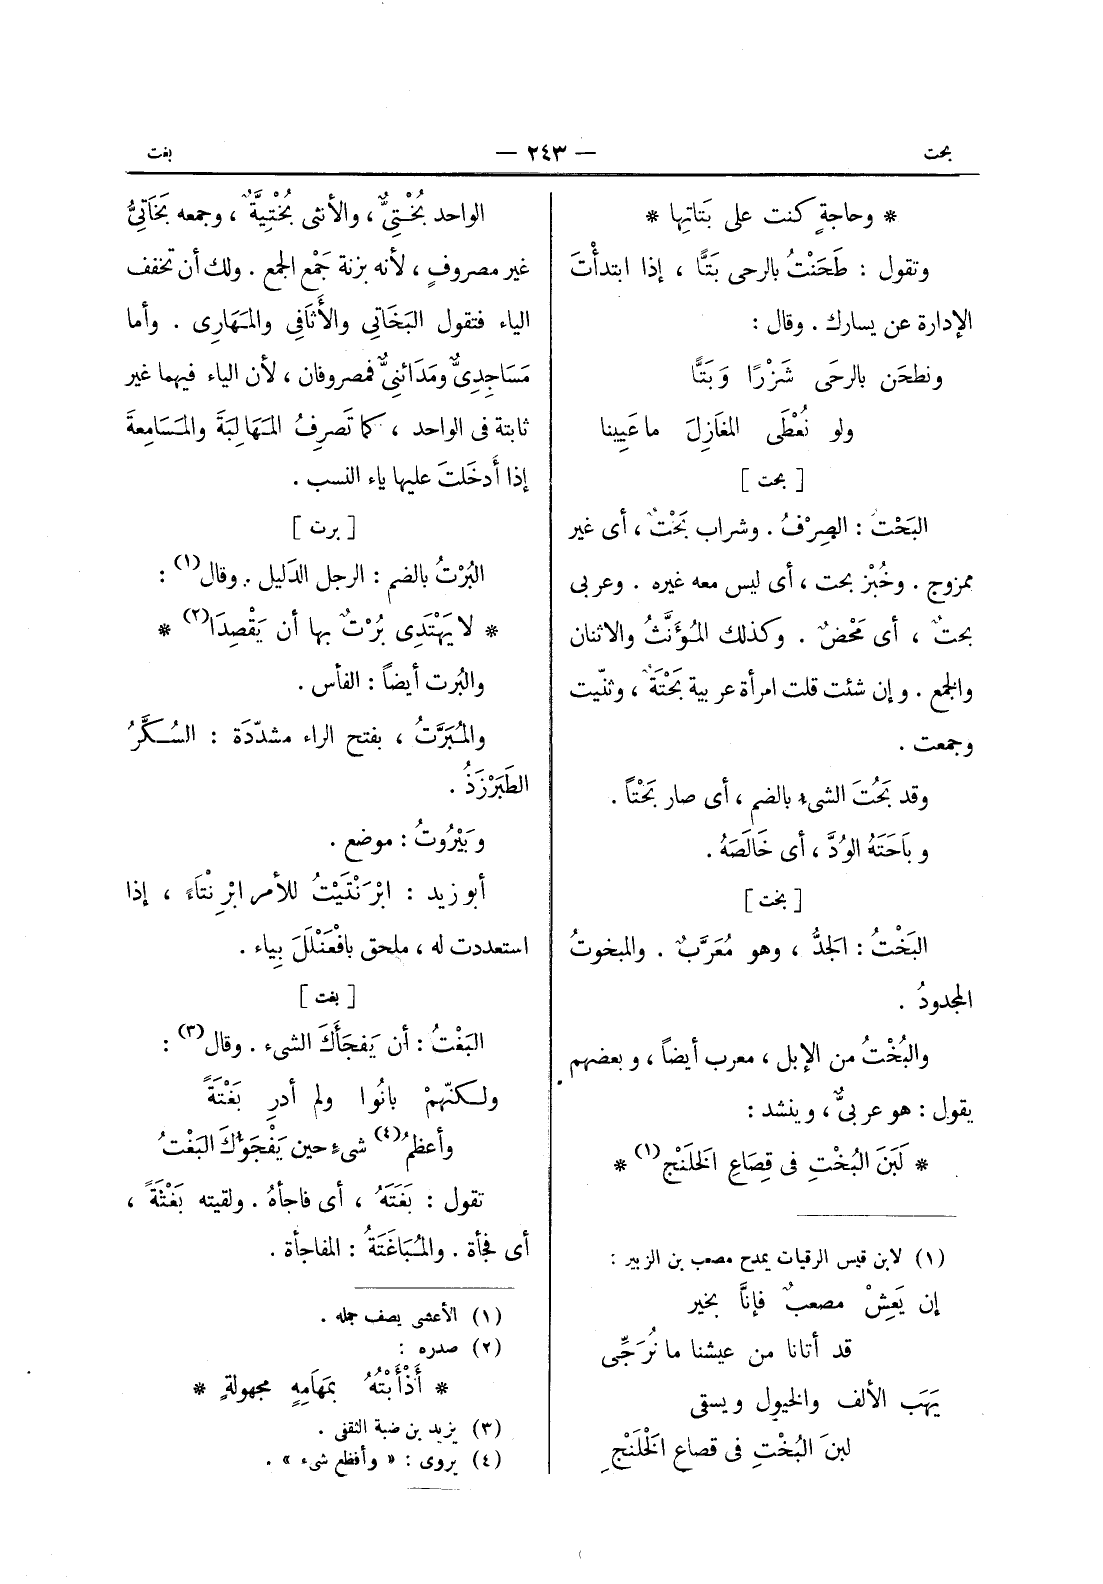 بحت
— ٢٤٣ —
بغت
* وحاجةٍ كنت على بَتاتِها *
وتقول : طَحَنْتُ بالرحى بَتًّا ، إذا ابتدأْتَ
الإدارة عن يسارك . وقال :
ونطحَن بالرحَى شَزْرًا وَبَتًّا
ولو نُعْطَى المغَازِلَ ماعَيِينا
[ بحت ]
البَحْتُ : الصِرْفُ . وشراب بَحْتٌ ، أى غير
ممزوج . وخُبْز بحت ، أى ليس معه غيره . وعربى
بحتٌ ، أى مَحْضٌ . وكذلك المُؤَنَّثُ والاثنان
والجمع . وإن شئت قلت امرأة عربية بَحْتَةٌ ، وثنّيت
وجمعت .
وقد بَحُتَ الشىء بالضم ، أى صار بَحْتاً .
وبَاحَتَهُ الوُدَّ ، أى خَالَصَهُ .
[ بخت ]
البَخْتُ : الجَدُّ ، وهو مُعَرَّبٌ . والمبخوتُ
المجدودُ .
والبُخْتُ من الإبل ، معرب أيضاً ، وبعضهم
يقول : هو عربىٌّ ، وينشد :
* لَبَنَ البُخْتِ فى قِصَاعِ الخَلَنْجِ(١) *
(١) لابن قيس الرقيات يمدح مصعب بن الزبير :
إن يَعِشْ مصعبٌ فإنَّا بخير
قد أتانا من عيشنا ما نُرَجِّى
يَهَب الألف والخيول ويسقى
لبنَ البُخْتِ فى قصاع الخَلَنْجِ
الواحد بُخْتِىٌّ ، والأنثى بُخْتِيَّةٌ ، وجمعه بَخَاتِىُّ
غير مصروفٍ ، لأنه بزنة جَمْع الجمع . ولك أن تخفف
الياء فتقول البَخَاتِى والأَثافِى والمَهَارِى . وأما
مَسَاجِدِىٌّ ومَدَائِنىٌّ فمصروفان ، لأن الياء فيهما غير
ثابتة فى الواحد ، كما تَصرِفُ المَهَالِبَةَ والمَسَامِعةَ
إذا أَدخَلتَ عليها ياء النسب .
[ برت ]
البُرْتُ بالضم : الرجل الدَليل . وقال(١) :
* لا يَهْتَدِى بُرْتٌ بها أن يَقْصِدَا(٢) *
والبُرت أيضاً : الفأس .
والمُبَرَّتُ ، بفتح الراء مشدّدَة : السُكَّرُ
الطَبَرْزَذُ .
وبَيْرُوتُ : موضع .
أبو زيد : ابْرَنْتَيْتُ للأمر ابْرِنْتَاءً ، إذا
استعددت له ، ملحق بافْعَنْلَلَ بِياء .
[ بغت ]
البَغْتُ : أن يَفجَأَكَ الشىء . وقال(٣) :
ولكنّهمْ بانُوا ولم أدرِ بَغْتَةً
وأعظمُ(٤) شىءٍ حين يَفْجَؤُكَ البَغْتُ
تقول : بَغَتَهُ ، أى فاجأهُ . ولقيته بَغْتَةً ،
أى فجأة . والمُبَاغَتَةُ : المفاجأة .
(١) الأعشى يصف جمله .
(٢) صدره :
* أَذْأَبْتُهُ بمَهَامِهٍ مجهولةٍ *
(٣) يزيد بن ضبة الثقفى .
(٤) يروى : « وأفظع شىء » .